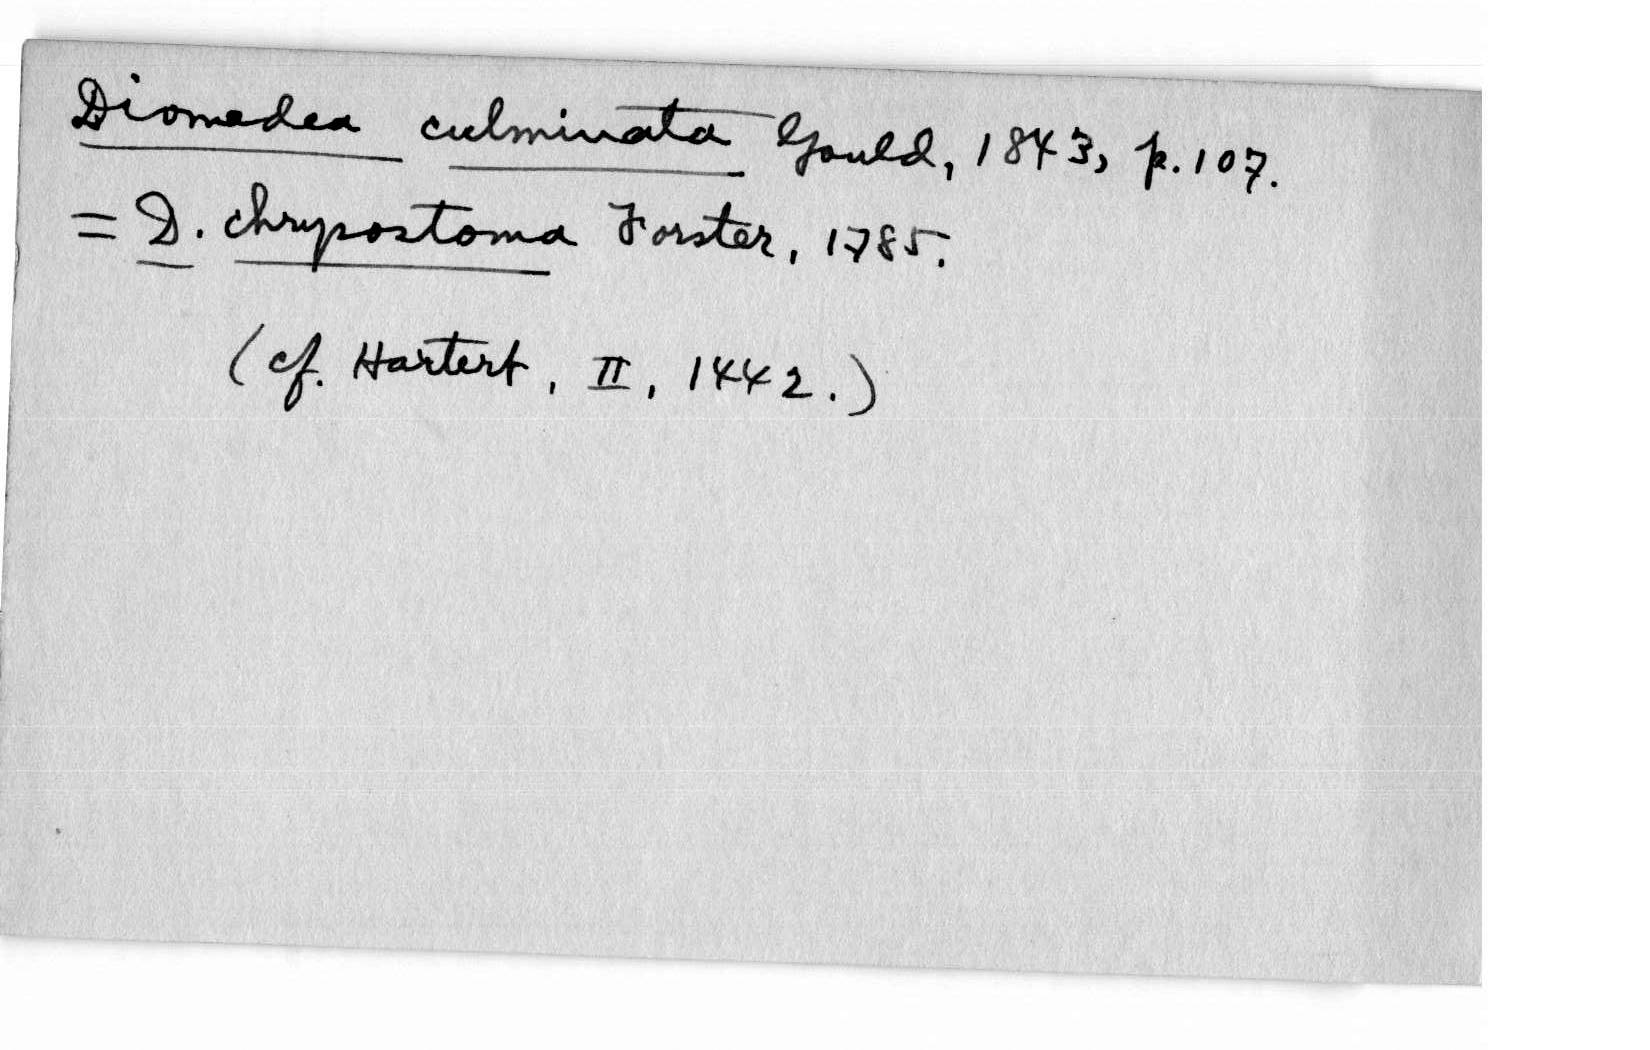 Diomedea culminata Gould, 1843, p. 107.
= D. chrysostoma Forster, 1785.
(cf. Hartert, II, 1442.)